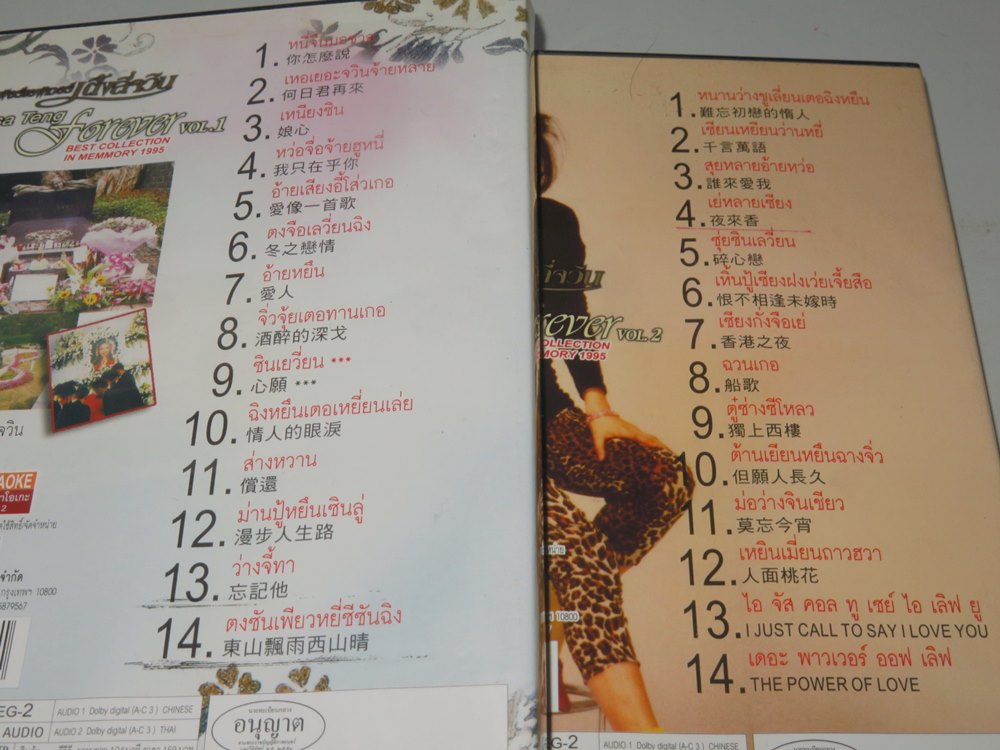 เติ้งลี่จวิน
Forever VOL.1
BEST COLLECTION
IN MEMMORY 1995
1. หนี่จึ่นมอซวอ
你怎麼說
2. เหอเยอะจวินจ้ายหลาย
何日君再來
3. เหนียงซิน
娘心
4. หว่อจื่อจ้ายฮูหนี่
我只在乎你
5. อ้ายเสียงอี้โส่วเกอ
愛像一首歌
6. ตงจือเลวี่ยนฉิง
冬之戀情
7. อ้ายหยืน
愛人
8. จิ่วจุ้ยเตอทานเกอ
酒醉的深戈
9. ซินเยวี่ยน ***
心願 ***
10. ฉิงหยืนเตอเหยี่ยนเล่ย
情人的眼淚
11. ส่างหวาน
償還
12. ม่านปู้หยืนเซินลู่
漫步人生路
13. ว่างจี้ทา
忘記他
14. ตงซันเพียวหยี่ซีซันฉิง
東山飄雨西山晴
จวิน
AOKE
าโอเกะ
2
จำกัด
กรุงเทพฯ 10800
5879567
EG-2
AUDIO
AUDIO 1 Dolby digital (A-C 3 ) CHINESE
AUDIO 2 Dolby digital (A-C 3 ) THAI
อนุญาต
VOL.2
OLLECTION
MORY 1995
1. หนานว่างชูเลี่ยนเตอฉิงหยืน
難忘初戀的惰人
2. เซียนเหยียนว่านหยี่
千言萬語
3. สุยหลายอ้ายหว่อ
誰來愛我
4. เย่หลายเซียง
夜來香
5. ซุ่ยซินเลวี่ยน
碎心戀
6. เหิ้นปู้เซียงฝงเว่ยเจี้ยสือ
恨不相逢未嫁時
7. เซียงกั่งจือเย่
香港之夜
8. ฉวนเกอ
船歌
9. ตู๋ซ่างซีโหลว
獨上西樓
10. ต้านเยียนหยืนฉางจิ่ว
但願人長久
11. ม่อว่างจินเซียว
莫忘今宵
12. เหยินเมี่ยนถาวฮวา
人面桃花
13. ไอ จัส คอล ทู เซย์ ไอ เลิฟ ยู
I JUST CALL TO SAY I LOVE YOU
14. เดอะ พาวเวอร์ ออฟ เลิฟ
THE POWER OF LOVE
10800
EG-2
AUDIO 1 Dolby digital (A-C 3 ) CHINESE